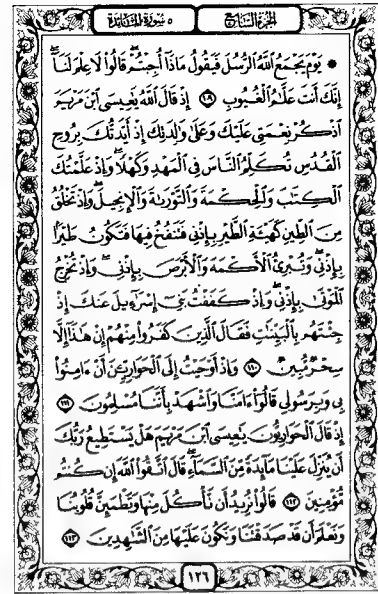 الجزء السابع
٥ سورة المائدة
۞ يَوْمَ يَجْمَعُ ٱللَّهُ ٱلرُّسُلَ فَيَقُولُ مَاذَآ أُجِبْتُمْ ۖ قَالُوا۟ لَا عِلْمَ لَنَآ ۖ
إِنَّكَ أَنتَ عَلَّـٰمُ ٱلْغُيُوبِ ١٠٩ إِذْ قَالَ ٱللَّهُ يَـٰعِيسَى ٱبْنَ مَرْيَمَ
ٱذْكُرْ نِعْمَتِى عَلَيْكَ وَعَلَىٰ وَٰلِدَتِكَ إِذْ أَيَّدتُّكَ بِرُوحِ
ٱلْقُدُسِ تُكَلِّمُ ٱلنَّاسَ فِى ٱلْمَهْدِ وَكَهْلًا ۖ وَإِذْ عَلَّمْتُكَ
ٱلْكِتَـٰبَ وَٱلْحِكْمَةَ وَٱلتَّوْرَىٰةَ وَٱلْإِنجِيلَ ۖ وَإِذْ تَخْلُقُ
مِنَ ٱلطِّينِ كَهَيْـَٔةِ ٱلطَّيْرِ بِإِذْنِى فَتَنفُخُ فِيهَا فَتَكُونُ طَيْرًۢا
بِإِذْنِى ۖ وَتُبْرِئُ ٱلْأَكْمَهَ وَٱلْأَبْرَصَ بِإِذْنِى ۖ وَإِذْ تُخْرِجُ
ٱلْمَوْتَىٰ بِإِذْنِى ۖ وَإِذْ كَفَفْتُ بَنِىٓ إِسْرَٰٓءِيلَ عَنكَ إِذْ
جِئْتَهُم بِٱلْبَيِّنَـٰتِ فَقَالَ ٱلَّذِينَ كَفَرُوا۟ مِنْهُمْ إِنْ هَـٰذَآ إِلَّا
سِحْرٌ مُّبِينٌ ١١٠ وَإِذْ أَوْحَيْتُ إِلَى ٱلْحَوَارِيِّـۧنَ أَنْ ءَامِنُوا۟
بِى وَبِرَسُولِى قَالُوٓا۟ ءَامَنَّا وَٱشْهَدْ بِأَنَّنَا مُسْلِمُونَ ١١١
إِذْ قَالَ ٱلْحَوَارِيُّونَ يَـٰعِيسَى ٱبْنَ مَرْيَمَ هَلْ يَسْتَطِيعُ رَبُّكَ
أَن يُنَزِّلَ عَلَيْنَا مَآئِدَةً مِّنَ ٱلسَّمَآءِ ۖ قَالَ ٱتَّقُوا۟ ٱللَّهَ إِن كُنتُم
مُّؤْمِنِينَ ١١٢ قَالُوا۟ نُرِيدُ أَن نَّأْكُلَ مِنْهَا وَتَطْمَئِنَّ قُلُوبُنَا
وَنَعْلَمَ أَن قَدْ صَدَقْتَنَا وَنَكُونَ عَلَيْهَا مِنَ ٱلشَّـٰهِدِينَ ١١٣
١٢٦